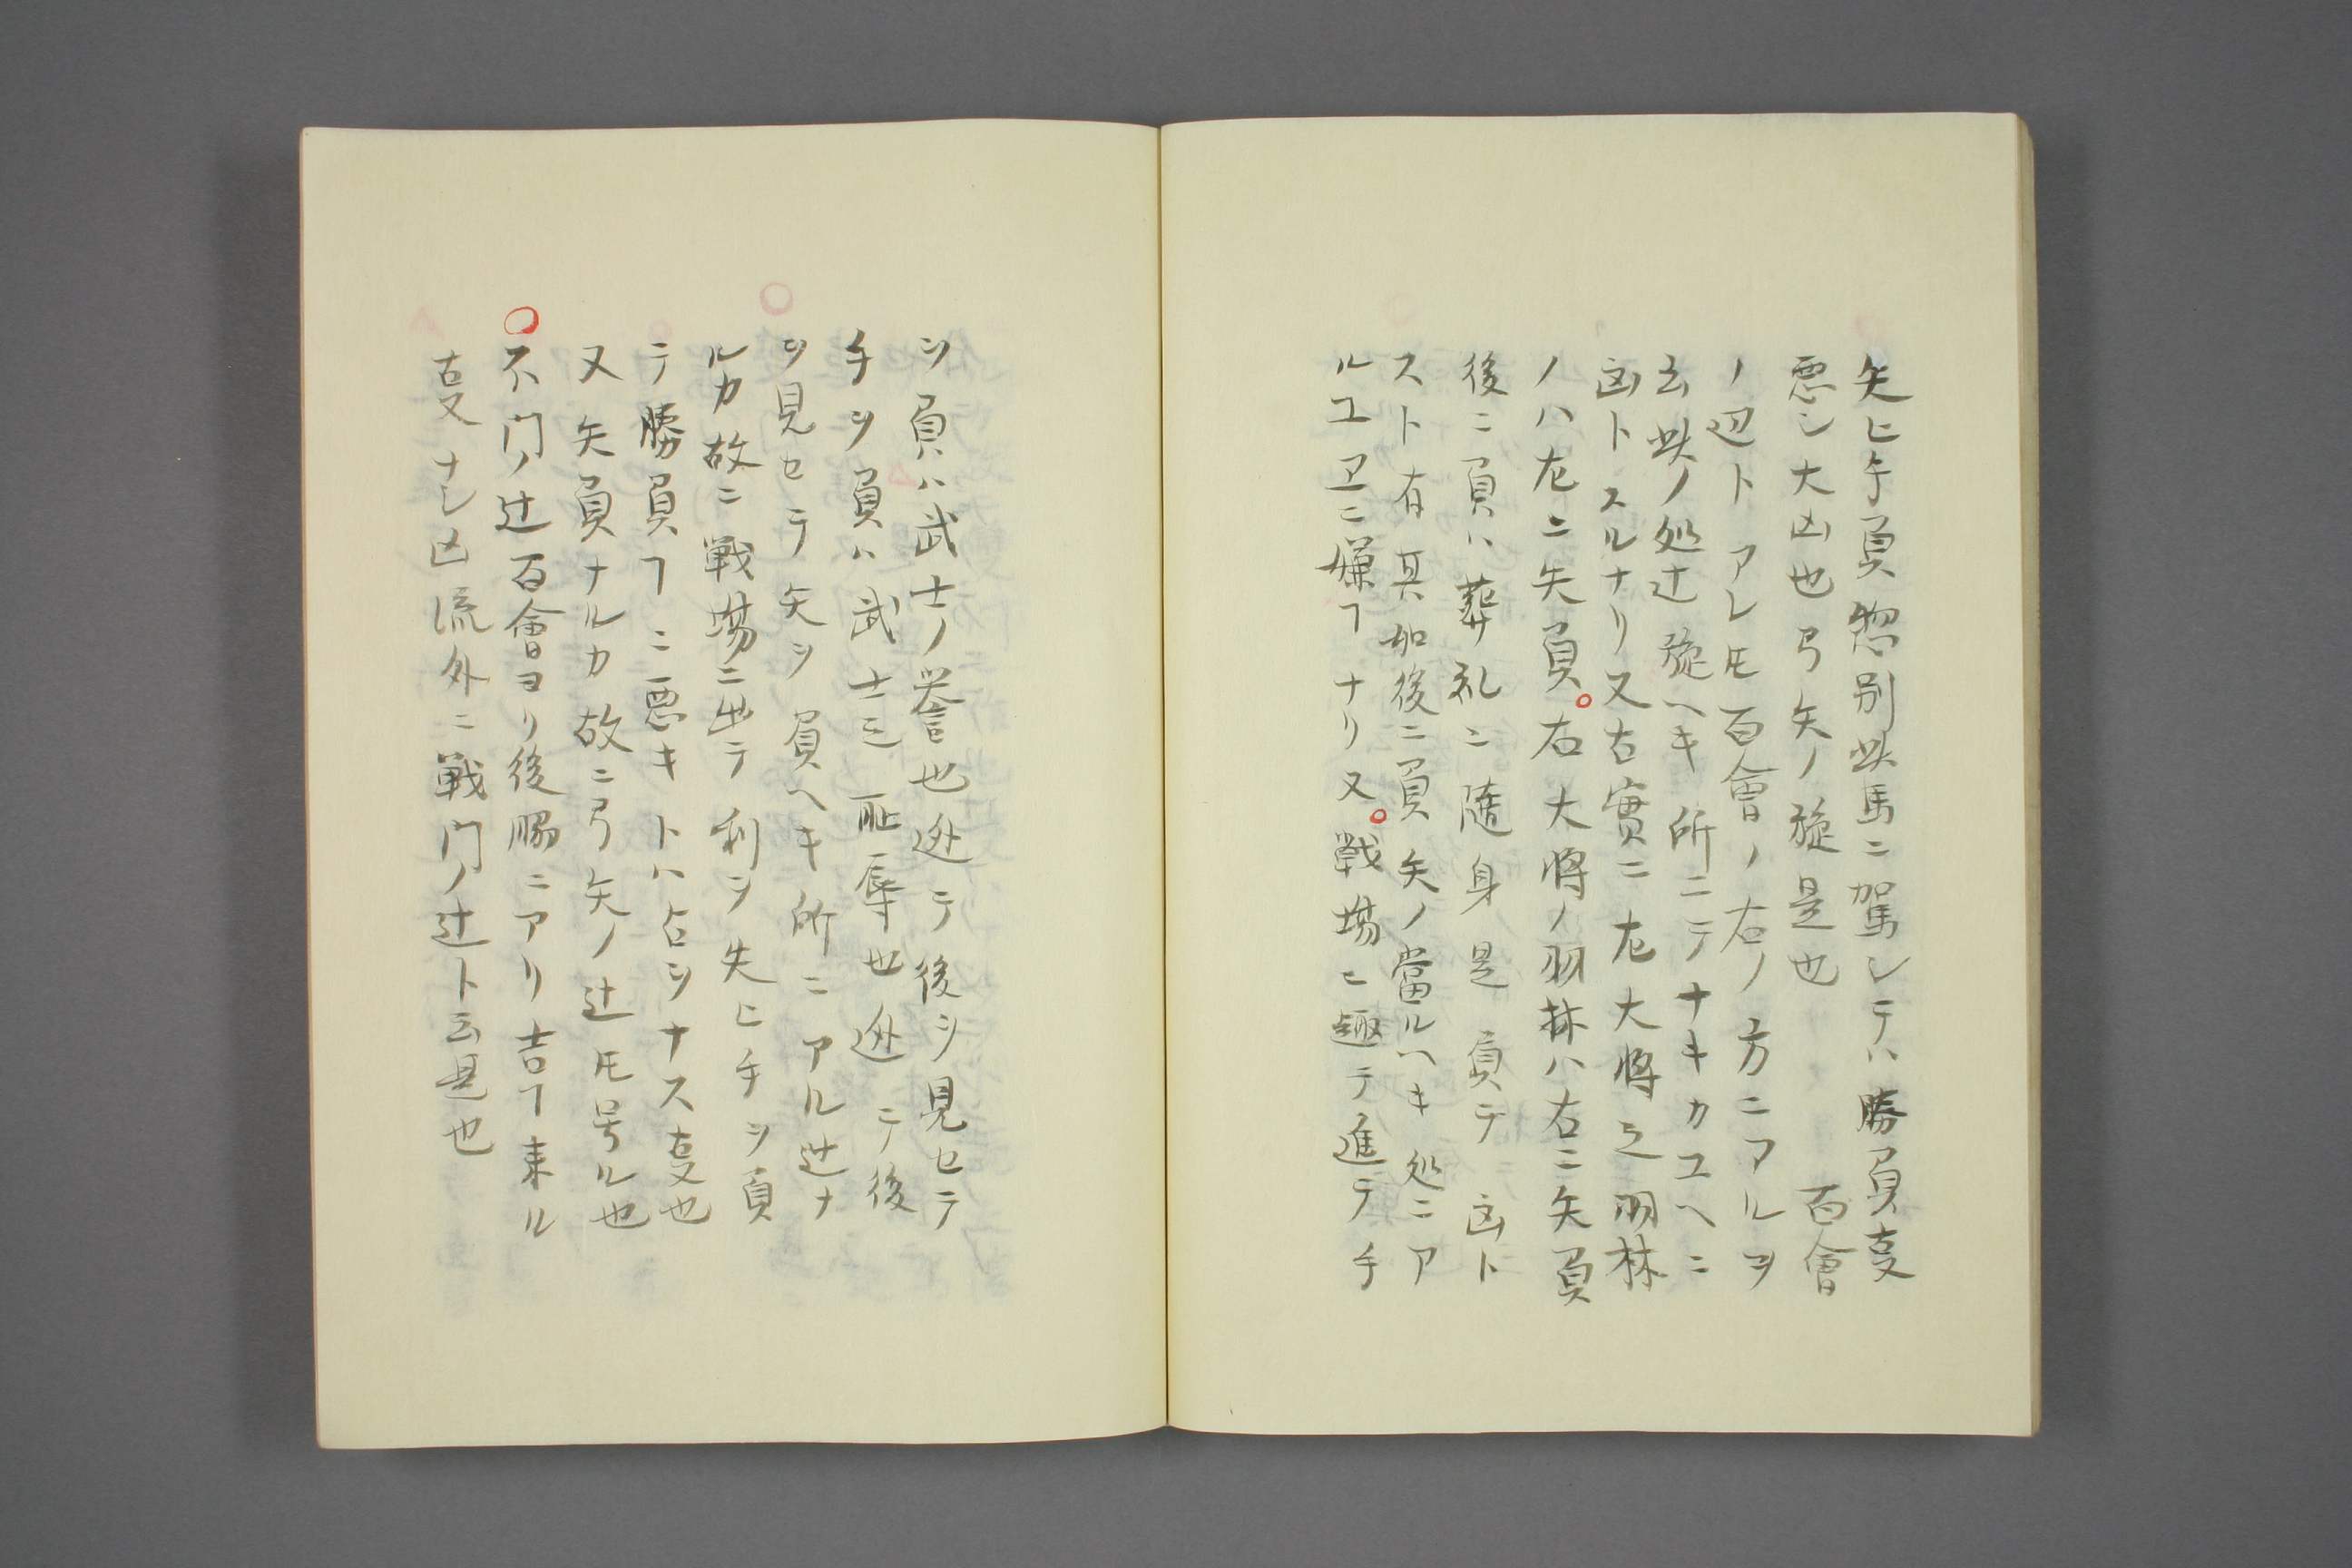 矢ヒ手負惣別此馬ニ駕シテハ勝負叓
悪シ大凶也弓矢ノ旋是也　　百會
ノ辺トアレ𪜈百會ノ右ノ方ニアルヲ
云此ノ処辻旋ヘキ所ニテナキカユヘニ
凶トスルナリ又古實ニ左大将之羽林
ノハ左ニ矢負○右大将ノ羽林ハ右ニ矢負
後ニ負ハ葬礼ニ随身是負テ凶ト
スト有其如後ニ負矢ノ當ルヘキ処ニア
ルユヱニ嫌フナリ又○戦場ニ趣テ進テ手
ヲ負ハ武士ノ誉也迯テ後ヲ見セテ
手ヲ負ハ武士之耻辱也迯テ後
ヲ見セテ矢ヲ負ヘキ所ニアル辻ナ
ルカ故ニ戦場ニ出テ利ヲ失ヒ手ヲ負
テ勝負ヿニ悪キトハ占ヲナス叓也
又矢負ナルカ故ニ弓矢ノ辻𪜈号ル也
○不門ノ辻百會ヨリ後腸ニアリ吉ヿ来ル
叓ナシ凶流外ニ戦門ノ辻ト云是也